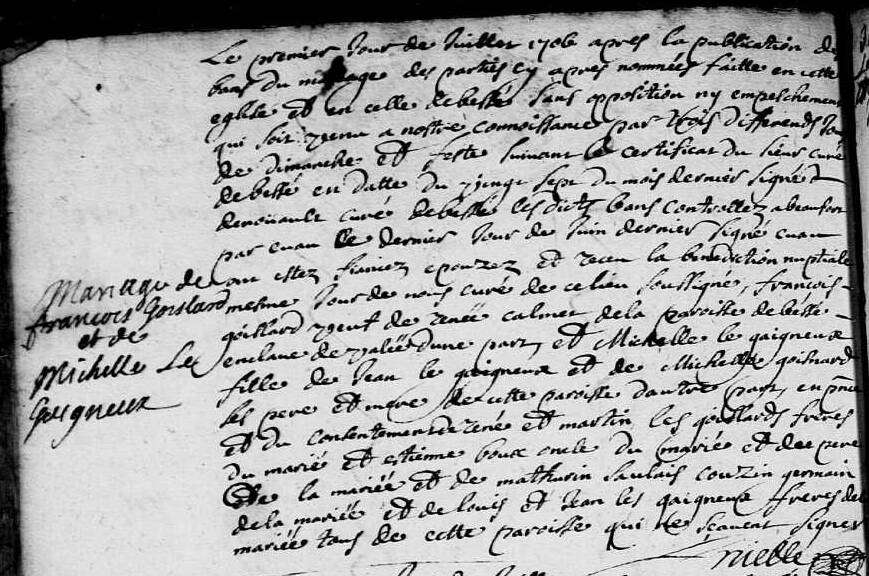 Le premier Jour de Juillet 1706 apres la publication de
bans du mariage des parties cy apres nommées faitte en cette
eglise et en celle de bessé sans opposition ny empeschement
qui soit venu a nostre connoissance par trois differends Jou
de dimanche et feste suivant le certificat du sieur curé
de bessé en datte du vingt sept du mois dernier signé
curé de bessé les dicts bans controllez a beaufort
par cuau le dernier Jour de Juin dernier signé cuau
on estez fiancez epouzez et receu la benediction nuptiale
mesme Jour de nous curé de ce lieu soussigné, françois
goislard veuf de renée calmet de la paroisse de bessé
enclave de d'une part, et Michelle le gaigneux
fille de Jean le gaigneux et de Michelle goisnard
ses pere et mere de cette paroisse d'autre part, en pnce
et du consentement de rené et martin les goislards freres
du marié et estienne boux oncle du marié et de pere
de la mariée et de mathurin saulais couzin germain
de la mariée et de louis et Jean les gaigneux freres de
mariée tous de cette paroisse qui ne scavent signer
Mariage de
francois Goislard
et de
Michelle Le
Gaigneux